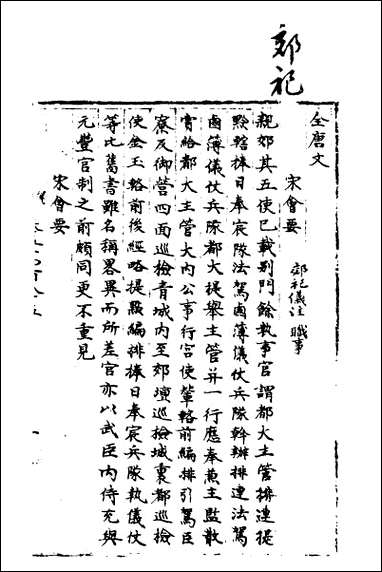 郊祀
全唐文
宋會要
郊祀儀注 職事
親郊其五使已載别門餘執事官謂都大主管排連提
點轄捧日奉宸隊法駕鹵簿儀仗兵隊幹辦排連法駕
鹵簿儀仗兵隊都大提舉主管并一行應奉兼主監散
賞給都大主管大内公事行宫使輦輅前編排引駕臣
寮及御營四面巡檢青城内至郊壇巡檢城裏都巡檢
使金玉輅前後經略提點編排捧日奉宸兵隊執儀仗
等比舊書雖名稱畧異而所差官亦以武臣内侍充與
元豐官制之前頗同更不重見
宋會要